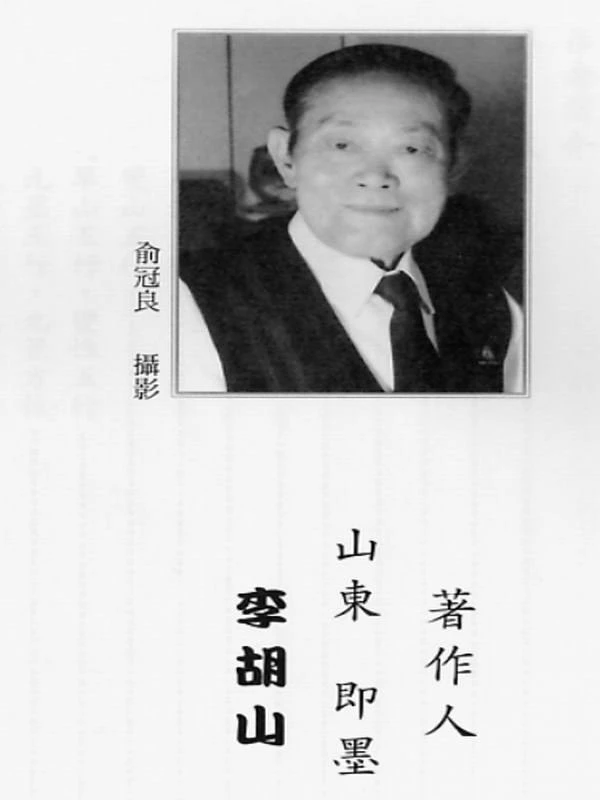 俞冠良 攝影
著作人
山東 即墨
李胡山